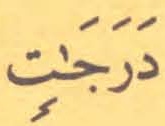 دَرَجَٰتٍ